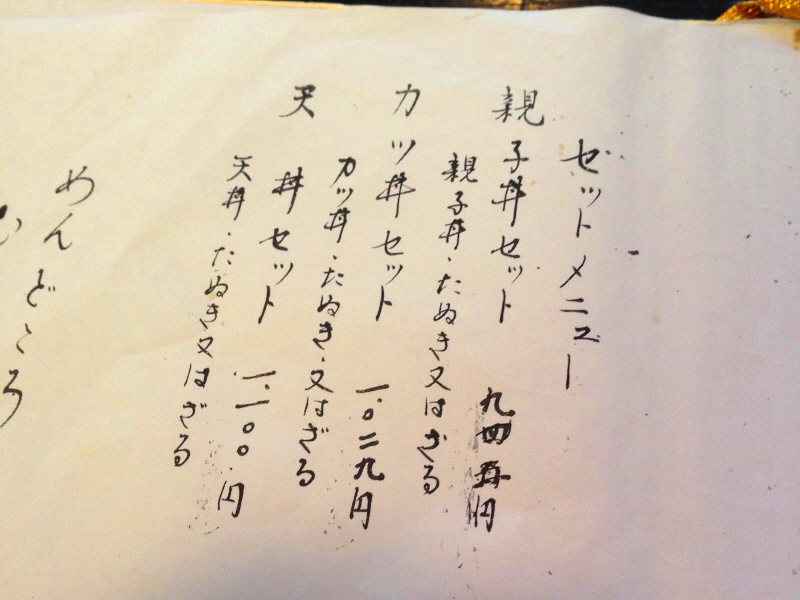 セットメニュー
親子丼セット 九四五円
親子丼・たぬき又はざる
カツ丼セット 一.〇二九円
カツ丼・たぬき・又はざる
天丼セット 一.一〇〇円
天丼・たぬき又はざる
めんどころ